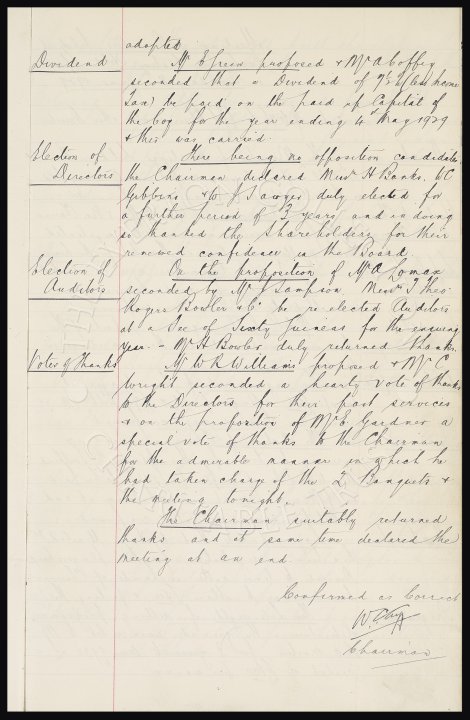 adopted
Dividend
Mr E Green proposed & Mr A Coffey
seconded that a Dividend of 7½% (less Income
Tax) be paid on the paid up Capital of
the Coy for the year ending 4th May 1929
& this was carried.
Election of
Directors
There being no opposition candidates
the Chairman declared Messrs H Banks, W C
Gibbins & W J Sawyer duly elected for
a further period of 3 years and in doing
so thanked the Shareholders for their
renewed confidence in the Board
Election of
Auditors
On the proposition of Mr A Lomax
seconded by Mr J Sampson Messrs J Theo
Rogers Bowler & Co be re-elected Auditors
at a Fee of Sixty Guineas for the ensuing
year. - Mr H Bowler duly returned thanks.
Votes of Thanks
Mr W R Williams proposed & Mr C
Wright seconded a hearty vote of thanks
to the Directors for their past services
& on the proposition of Mr E Gardner a
special vote of thanks to the Chairman
for the admirable manner in which he
had taken charge of the 2 Banquets &
the meeting tonight.
The Chairman suitably returned
thanks and at same time declared the
meeting at an end.
Confirmed as Correct
Chairman